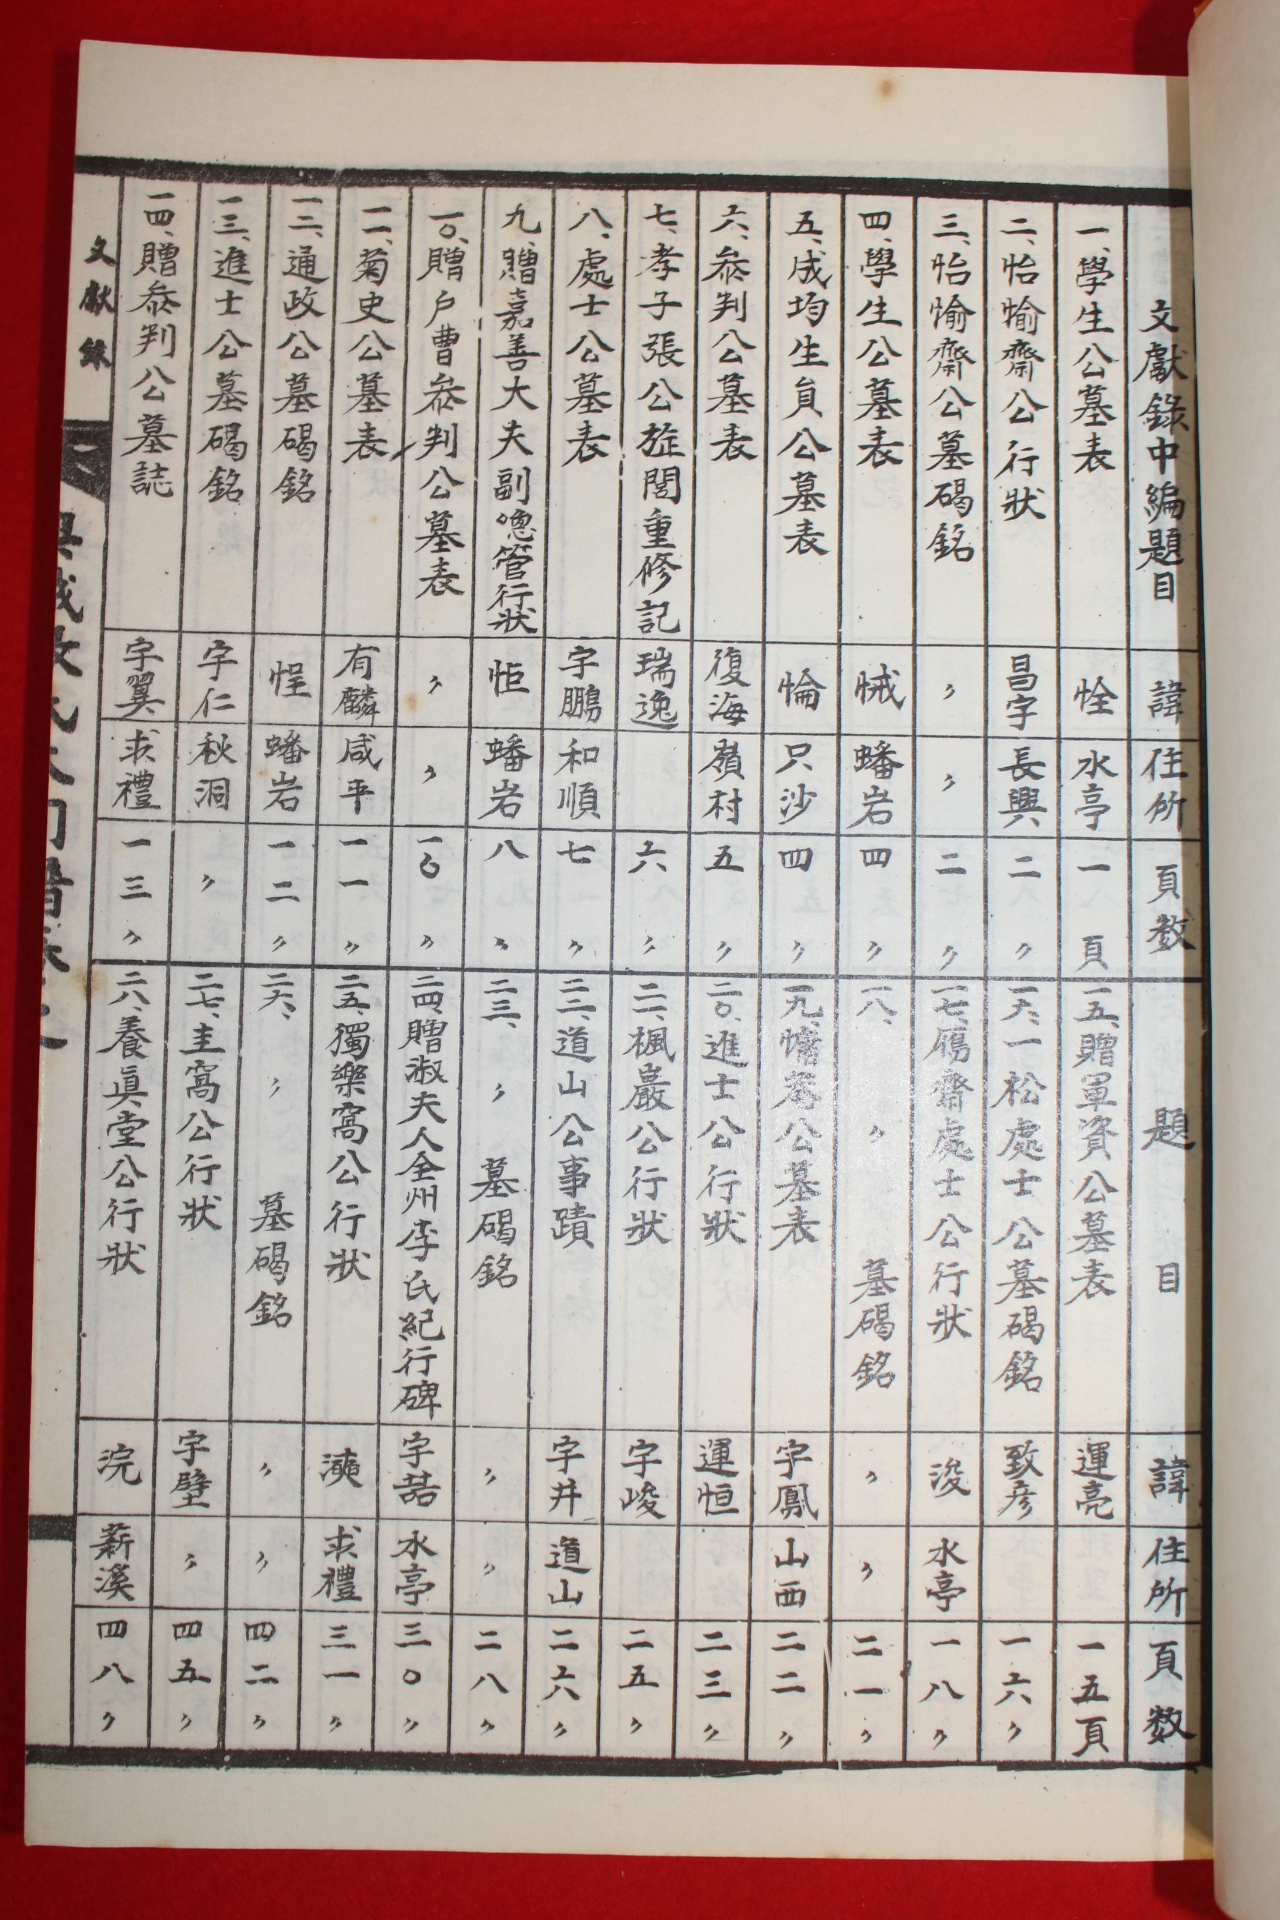 文獻錄中編題目 諱 住所 頁數
一、學生公墓表 恮 水亭 一頁
二、怡愉齋公行狀 昌宇 長興 二〃
三、怡愉齋公墓碣銘 〃 〃 二〃
四、學生公墓表 悈 蟠岩 四〃
五、成均生員公墓表 惀 只沙 四〃
六、叅判公墓表 復海 嶺村 五〃
七、孝子張公旌閭重修記 瑞逸 六〃
八、處士公墓表 字鵬 和順 七〃
九、贈嘉善大夫副總管行狀 怇 蟠岩 八〃
一〇、贈戶曹叅判公墓表 〃 〃 一〇〃
一一、菊史公墓表 有麟 咸平 一一〃
一二、通政公墓碣銘 悜 蟠岩 一二〃
一三、進士公墓碣銘 字仁 秋洞 〃
一四、贈叅判公墓誌 字翼 求禮 一三〃
題目 諱 住所 頁數
一五、贈軍資公墓表 運亮 一五頁
一六、一松處士公墓碣銘 致彦 一六〃
一七、鴈齋處士公行狀 浚 水亭 一八〃
一八、〃 墓碣銘 〃 〃 二一〃
一九、慵菴公墓表 字鳳 山西 二二〃
二〇、進士公行狀 運恒 二三〃
二一、楓巖公行狀 字峻 二五〃
二二、道山公事蹟 字井 道山 二六〃
二三、〃 墓碣銘 〃 〃 二八〃
二四、贈淑夫人全州李氏紀行碑 字喆 水亭 三〇〃
二五、獨樂窩公行狀 求禮 三一〃
二六、〃 墓碣銘 〃 〃 四二〃
二七、圭窩公行狀 字璧 〃 四五〃
二八、養眞堂公行狀 浣 薪溪 四八〃
文獻錄